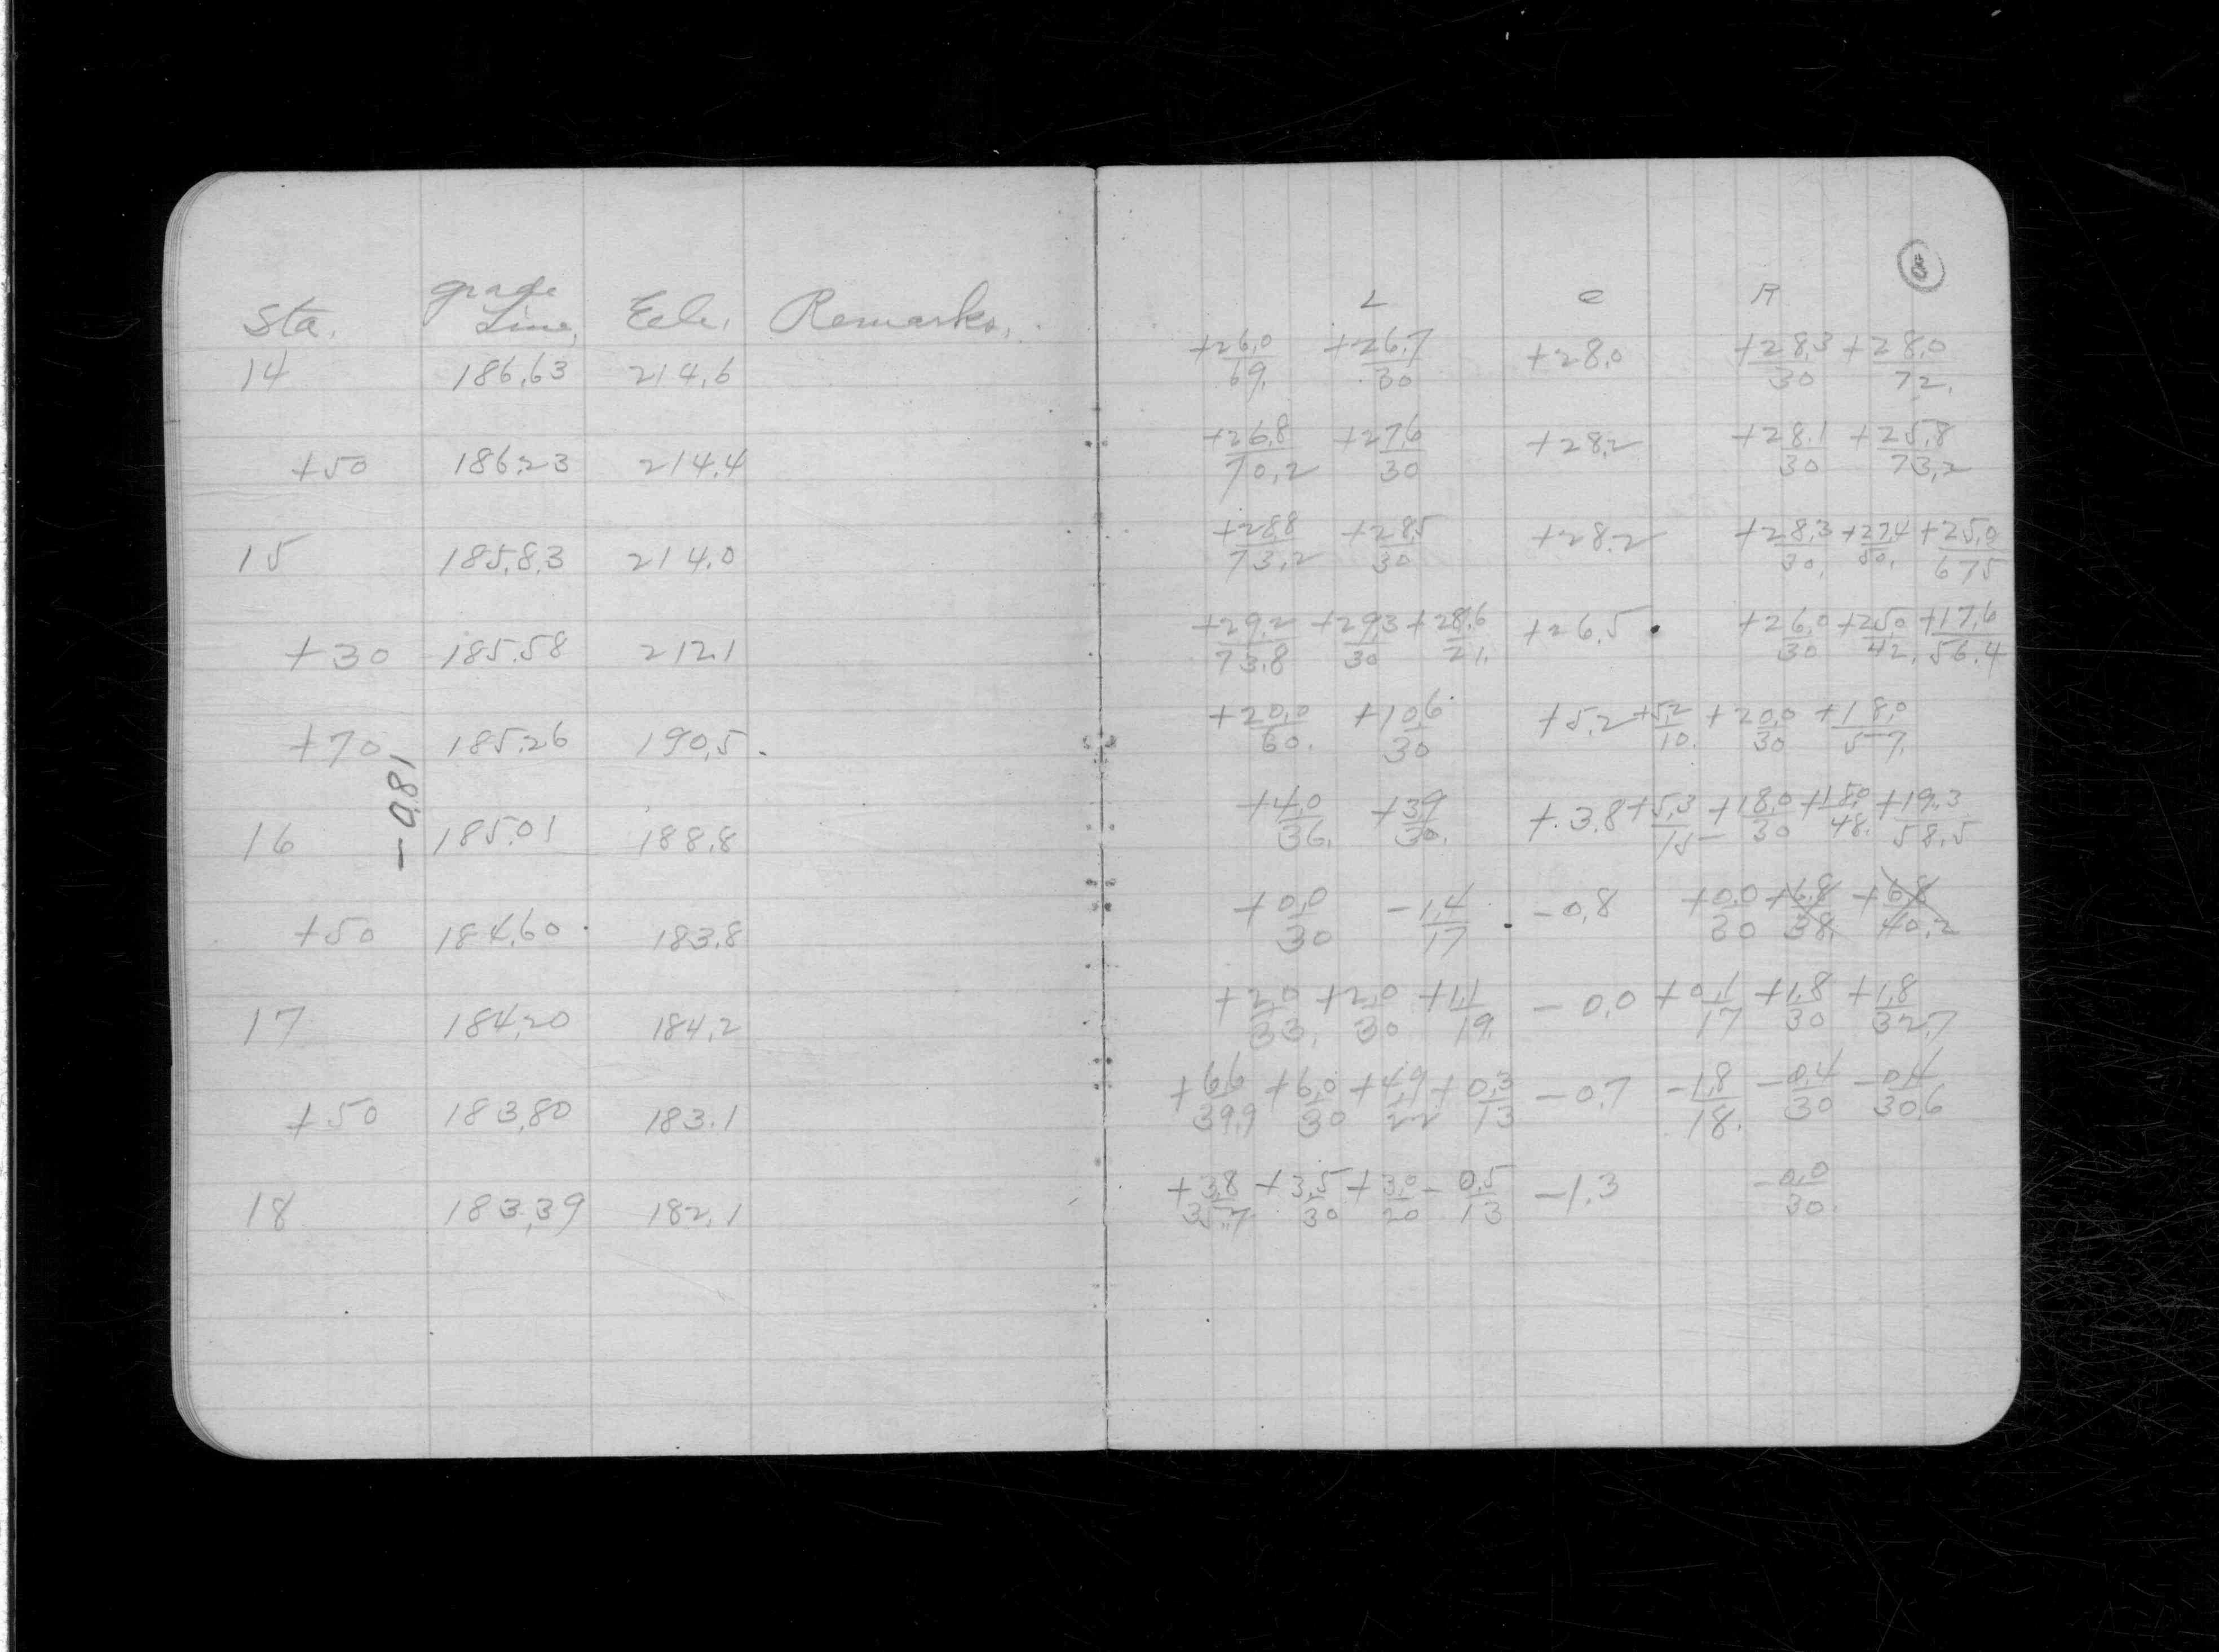 Sta. grade Line. Ele. Remarks.
14 186.63 214.6
+50 186.23 214.4
15 185.83 214.0
+30 185.58 212.1
+70 185.26 190.5
-0.81
16 185.01 188.8
+50 184.60 183.8
17 184.20 184.2
+50 183.80 183.1
18 183.39 182.1
L C R
+26.0/69. +26.7/30 +28.0 +28.3/30 +28.0/72.
+26.8/70.2 +27.6/30 +28.2 +28.1/30 +25.8/73.2
+28.8/73.2 +28.5/30 +28.2 +28.3/30. +27.4/50. +25.0/67.5
+29.2/73.8 +29.3/30 +28.6/21. +26.5 +26.0/30 +25.0/42. +17.6/56.4
+20.0/60. +10.6/30 +5.2 +5.2/10. +20.0/30 +18.0/57.
+4.0/36. +3.9/30. +3.8 +5.3/15 +18.0/30 +18.0/48. +19.3/58.5
+0.0/30 -1.4/17 -0.8 +0.0/30 +6.8/38. +6.8/40.2
+2.0/33. +2.0/30 +1.1/19. -0.0 +0.1/17 +1.8/30 +1.8/32.7
+6.6/39.9 +6.0/30 +4.9/22 +0.3/13 -0.7 -1.8/18. -0.4/30 -0.4/30.6
+3.8/35.7 +3.5/30 +3.0/20 -0.5/13 -1.3 -0.0/30.